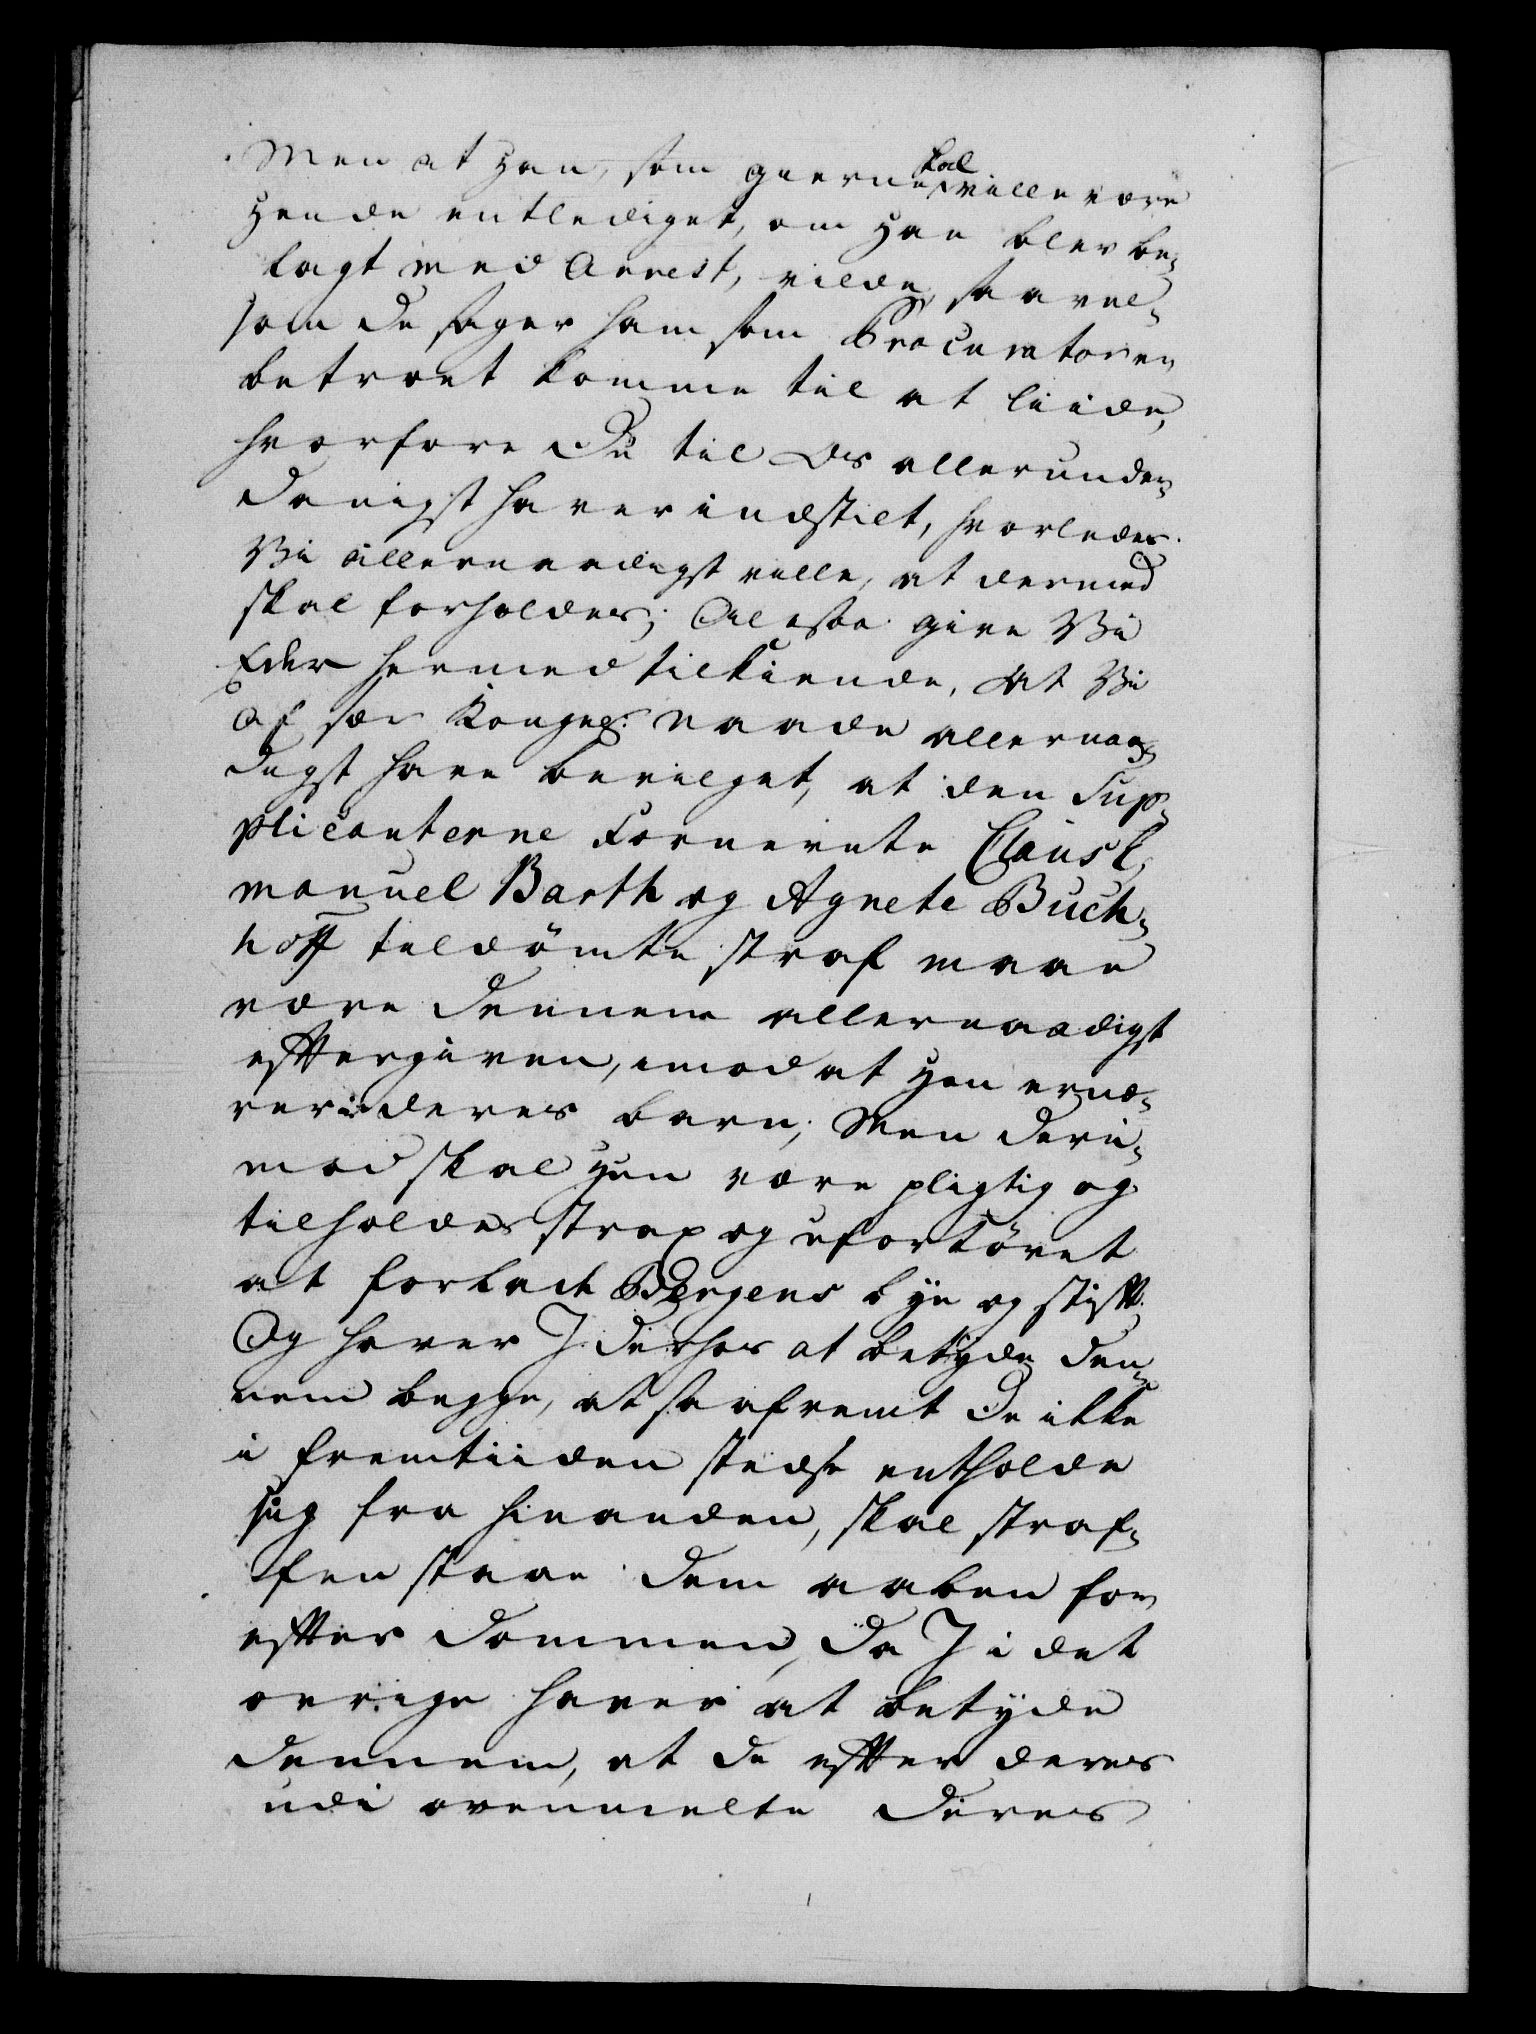 Men at han, som gierne skal ville være
hende entlediget, om han blev be-
lagt med Arrest, vilde, saavel-
som de sager ham som Procuratoren
betroet komme til at liide,
hvorfore Du til Os allerunder-
danigst haver indstilt, hvorledes
Vi allernaadigst ville, at dermed
skal forholdes; Alesaa give Vi
Eder hermed tilkiende, at Vi
af sær Kongel: Naade allernaa-
digst have bevilget, at den Sup-
plicanterne Fornevnte Claus E-
manuel Barth og Agnete Buch-
hoff tildömte straf maae
være dennem allernaadigst
efftergiven, imod at han ernæ-
rer deres barn; Men deri-
mod skal han være pligtig og
tilholdes strax og ufortövet
at forlade Bergens bye og stifft.
Og haver I derhos at betyde den-
nem begge, at saafremt de ikke
i fremtiiden stedse entholde
sig fra hinanden, skal straf-
fen staae dem aaben for
effter Dommen, da I i det
övrige haver at betyde
dennem, at de effter deres
udi ovenmelte deres